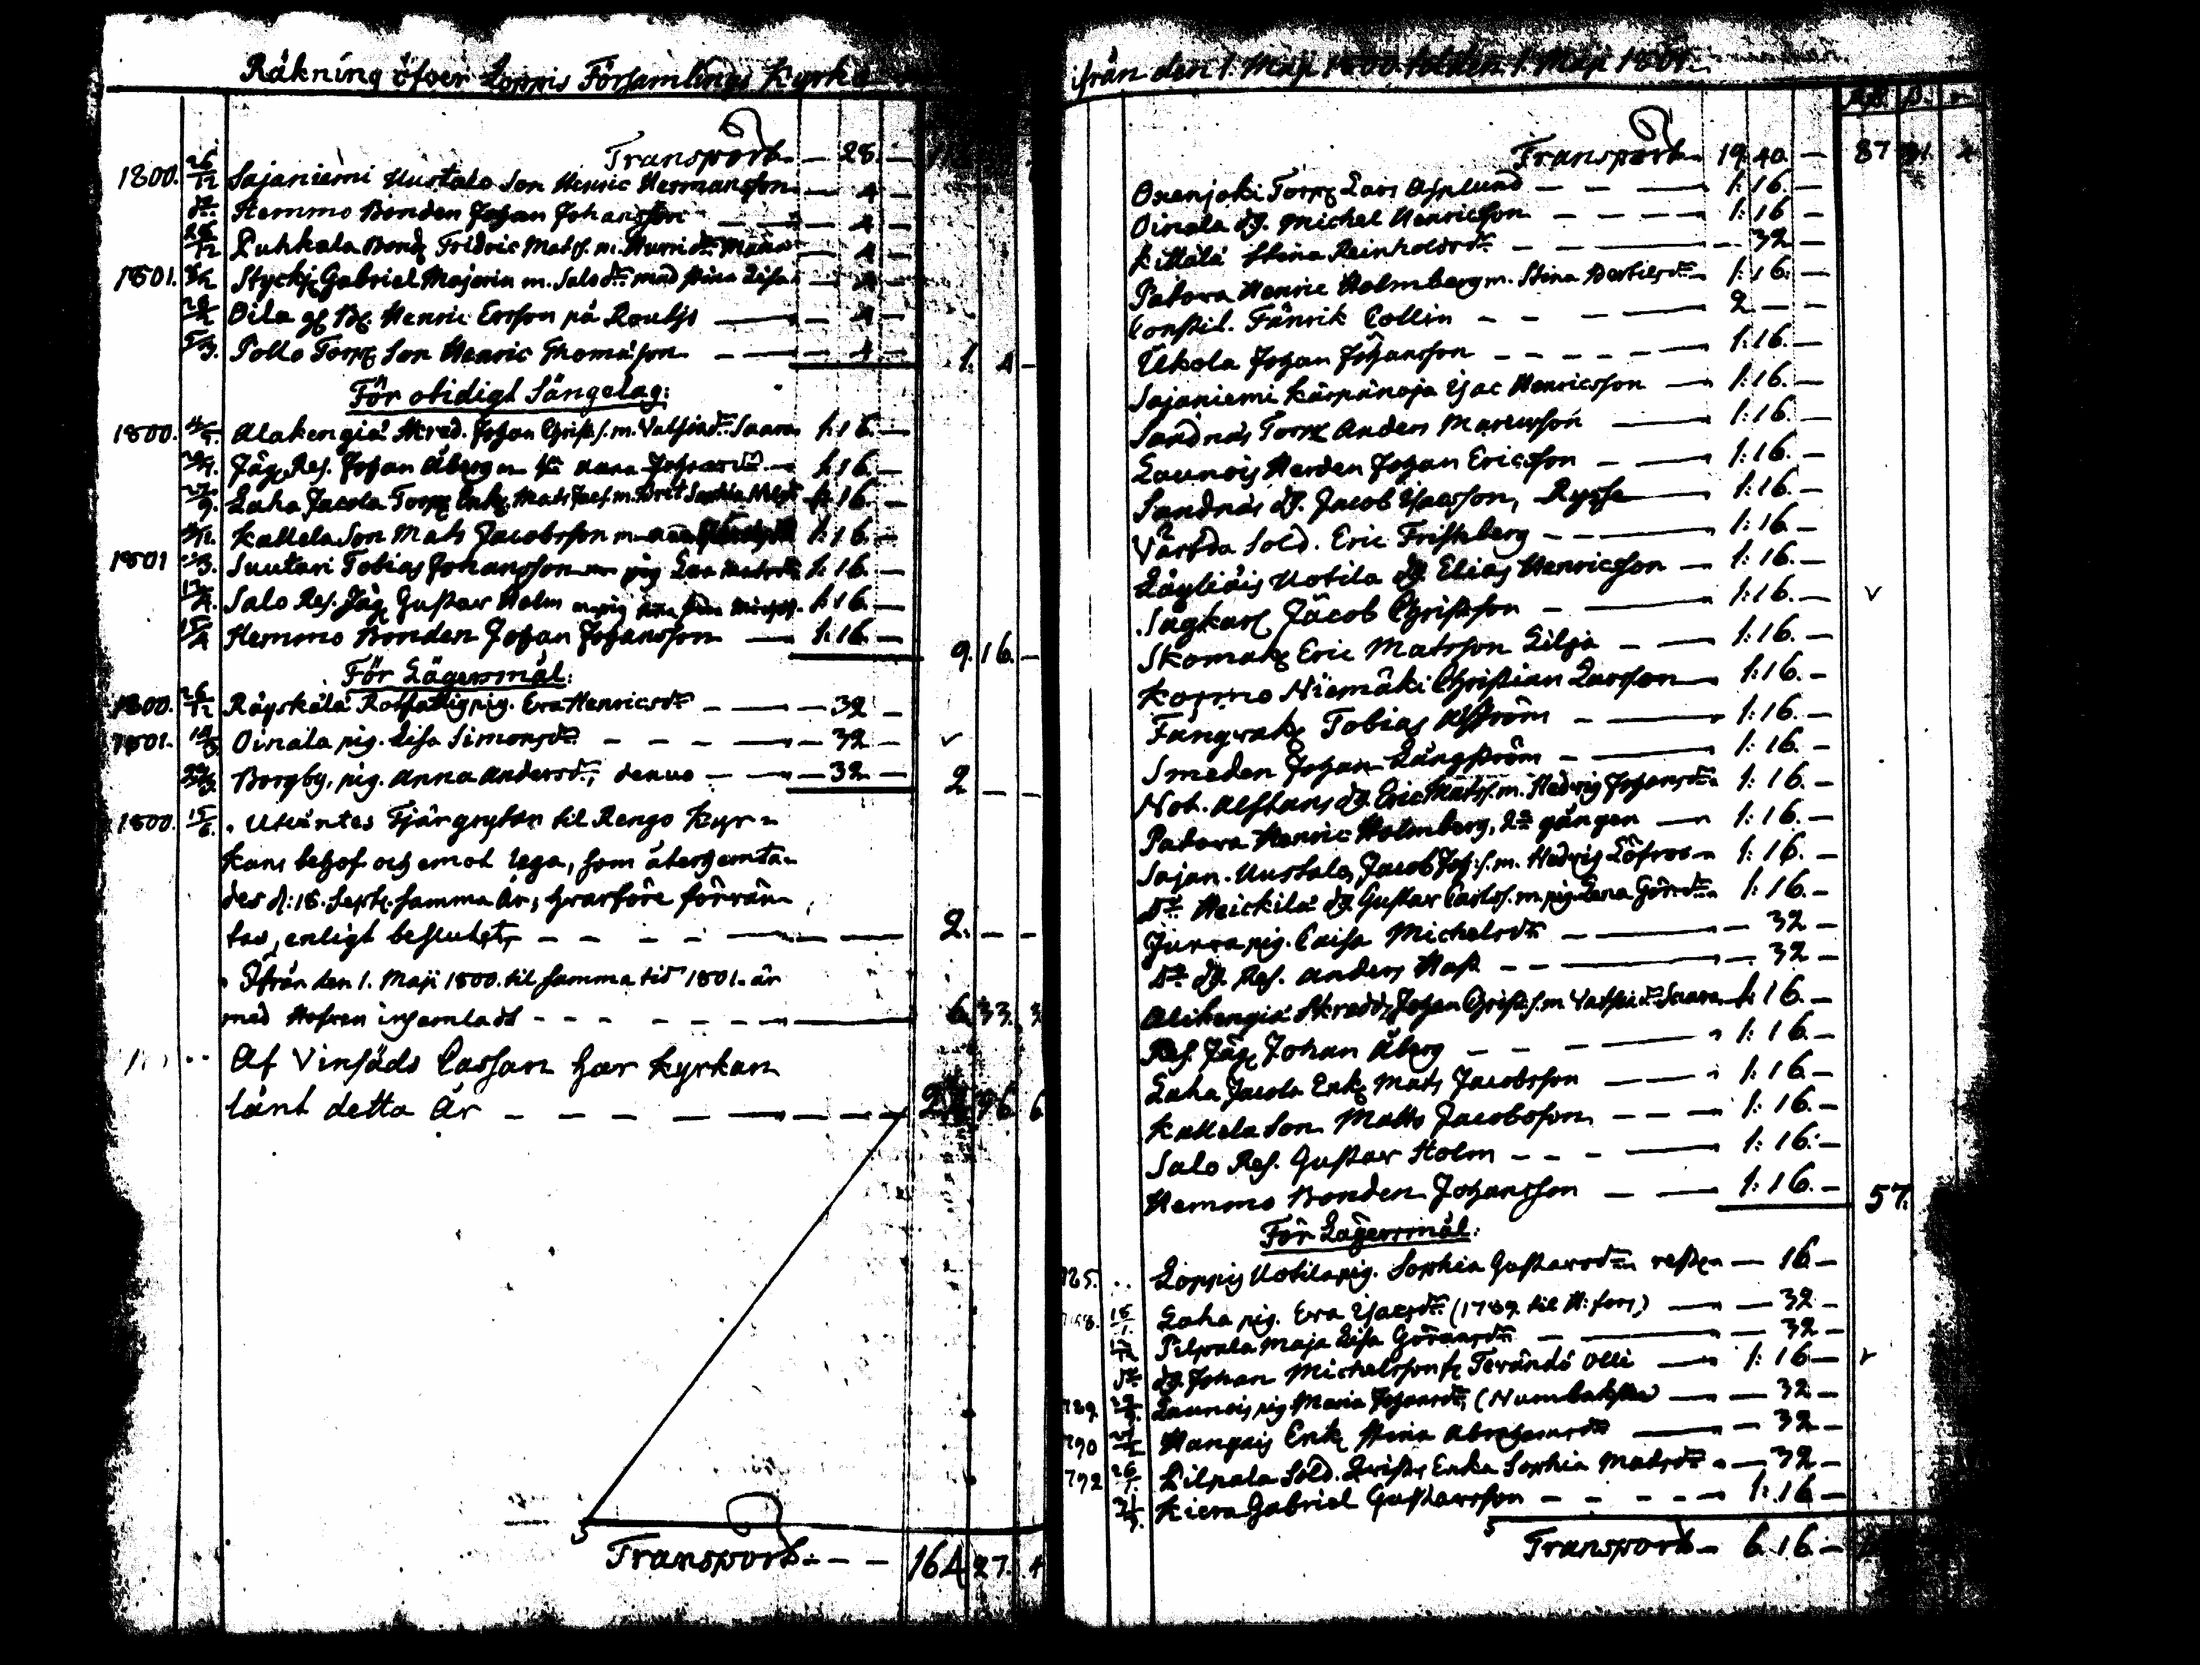 Räkning öfver Loppis Församlings Kyrka
Transport — 28. —
1800. 26/12 Sajaniemi Uustalo Son Henric Hermansson — 4 —
dº Hemmo Bonden Johan Johansson — 4 —
26/12 Puhkala Bond. Fridric Mats S. m. — 4 —
1801. Styckj. Gabriel Majorin m. Salo dr. med Stina Lisa — 4 —
Oila Henric Ersson på Routjo — 4 —
Pollo Torp. Son Henric Thomasson — 4 — 1. 4 —
För otidigt Sängelag:
1800. Alakengiä Skred. Johan Christ. S. m. Saara 1:16. —
Jäg. Res. Johan Åberg m. Anna Johansdr — 1:16 —
Laha Jacola Torp. Enk. Mats Jac. S. m. Brit Sophia 1:16 —
Kallela Son Mats Jacobsson m. 1:16 —
1801 Suutari Tobias Johansson m. pig. 1:16. —
Salo Res. Jäg. Gustav Holm m. pig. 1:16. —
15/4 Hemmo Bonden Johan Johansson — 1:16 — 9. 16. —
För Lägersmål:
1800. 26/12 Räyskälä Rotfattig pig. Eva Henricsdr — 32 —
1801. Oinala pig. Lisa Simonsdr — 32 —
Borgby, pig. Anna Andersdr, denuo — 32 — 2 — —
1800. 15/6. Utväntes Tjärgrytan til Rengo Kyr-
kans behof och emot lega, som återhemta-
des d: 18. Sept. samma År, hvarföre förrän-
tas, enligt beslutet, — 2. — —
Ifrån den 1. Maji 1800. til samma tid 1801. är
med Hofven insamladt — 6. 33. 3
Af Vinsäds Cassan har Kyrkan
lånt detta År — 6
Transport. — 164 27. 4
ifrån den 1. Maji 1800 til den 1. Maji 1801.
Transport — 19. 40. — 87
Oxenjoki Torp. Lars Asplund — 1:16. —
Oinala dg. Michel Henricsson — 1:16 —
Kittälä Stina Reinholdsdr — 32 —
Patova Henric Holmberg m. Stina Bertilsdr — 1:16. —
Constit. Fänrik Collin — 2 — —
Ukola Johan Johansson — 1:16. —
Sajaniemi Kärpänoja Isac Henricsson — 1:16. —
Sandnäs Torp. Anders Marcusson — 1:16. —
Launois Herden Johan Ericsson — 1:16. —
Sandnäs dg. Jacob Isacsson, Ryssa — 1:16. —
Värfda Sold. Eric Friskberg — 1:16 —
Läyliäis Uotila dg. Elias Henricsson — 1:16. —
Sagkarl Jacob Christsson — 1:16. —
Skomak. Eric Matsson Lilja — 1:16. —
Kormo Niemäki Christian Larsson — 1:16. —
Fångvak. Tobias Alström — 1:16. —
Smeden Johan Långström — 1:16. —
Not. Alftans dg. Eric Mats S. m. Hedvig Johansdr 1:16. —
Patova Henric Holmberg, 2a gången — 1:16. —
Sajan. Uustalo, Jacob Joh. S. m. Hedvig Löfroos 1:16. —
dº Heickilä dg. Gustav Carls S. m. pig. Lena Görsdr 1:16. —
Jurva pig. Caisa Michelsdr — 32 —
dº dg. Res. Anders Hast — 32 —
Alikengiä Skredd. Johan Christ. S. m. Saara 1:16. —
Res. Jäg. Johan Åberg — 1:16. —
Laha Jacola Enk. Mats Jacobsson — 1:16. —
Kallela Son Matts Jacobsson — 1:16. —
Salo Res. Gustav Holm — 1:16: —
Hemmo Bonden Johansson — 1:16. — 57.
För Lägersmål:
Loppis Uotila pig. Sophia Gustavsdr resten — 16 —
Laha pig. Eva Isacsdr (1789. til H:fors) — 32 —
Pilpala Maja Lisa Göransdr — 32 —
dº dg. Johan Michelsson fr. Terändö Olli — 1:16 —
789 Launois pig. Maria Johansdr, (Numbal — 32 —
790 Hangais Enk. Stina Abrahamsdr — 32 —
792 Pilpala Sold. Enka Sophia Matsdr — 32 —
Kiera Gabriel Gustavsson — 1:16 —
Transport — 6. 16. —